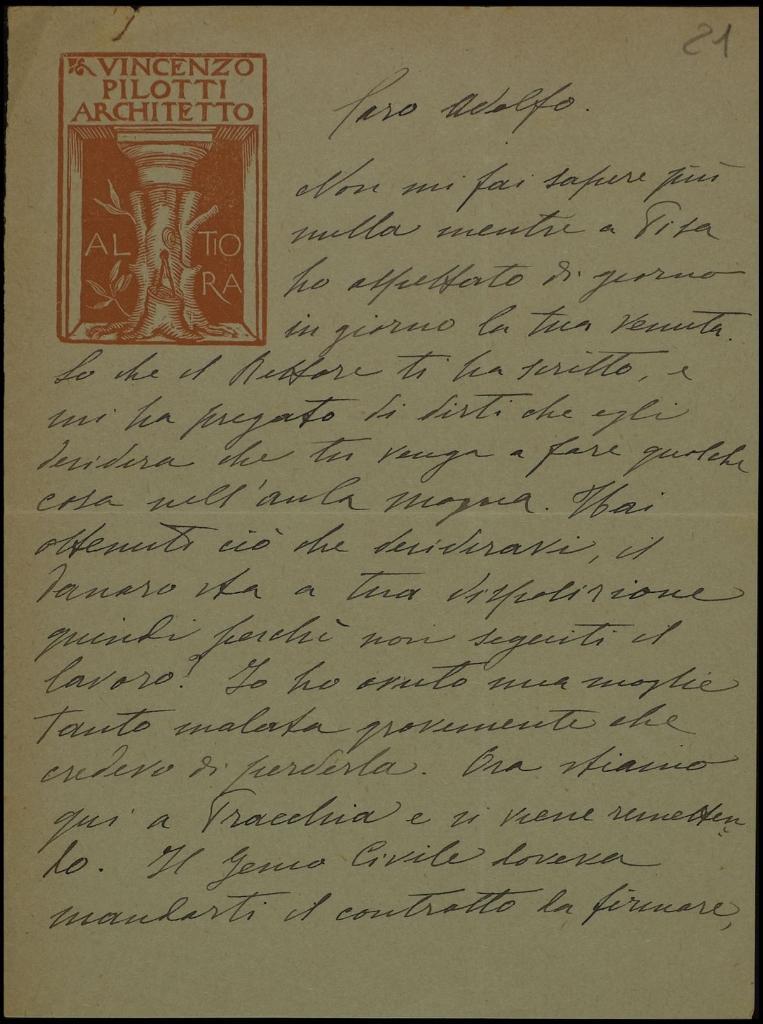 21
VINCENZO
PILOTTI
ARCHITETTO
AL TIO
RA
Caro Adolfo.
Non mi fai sapere più
nulla mentre a Pisa
ho aspettato di giorno
in giorno la tua venuta.
So che il Rettore ti ha scritto, e
mi ha pregato di dirti che egli
desidera che tu venga a fare qualche
cosa nell'aula magna. Hai
ottenuto ciò che desideravi, il
danaro sta a tua disposizione
quindi perchè non seguiti il
lavoro? Io ho avuto mia moglie
tanto malata gravemente che
credevo di perderla. Ora stiamo
qui a Pracchia e si viene rimetten
do. Il Genio Civile doveva
mandarti il contratto da firmare,